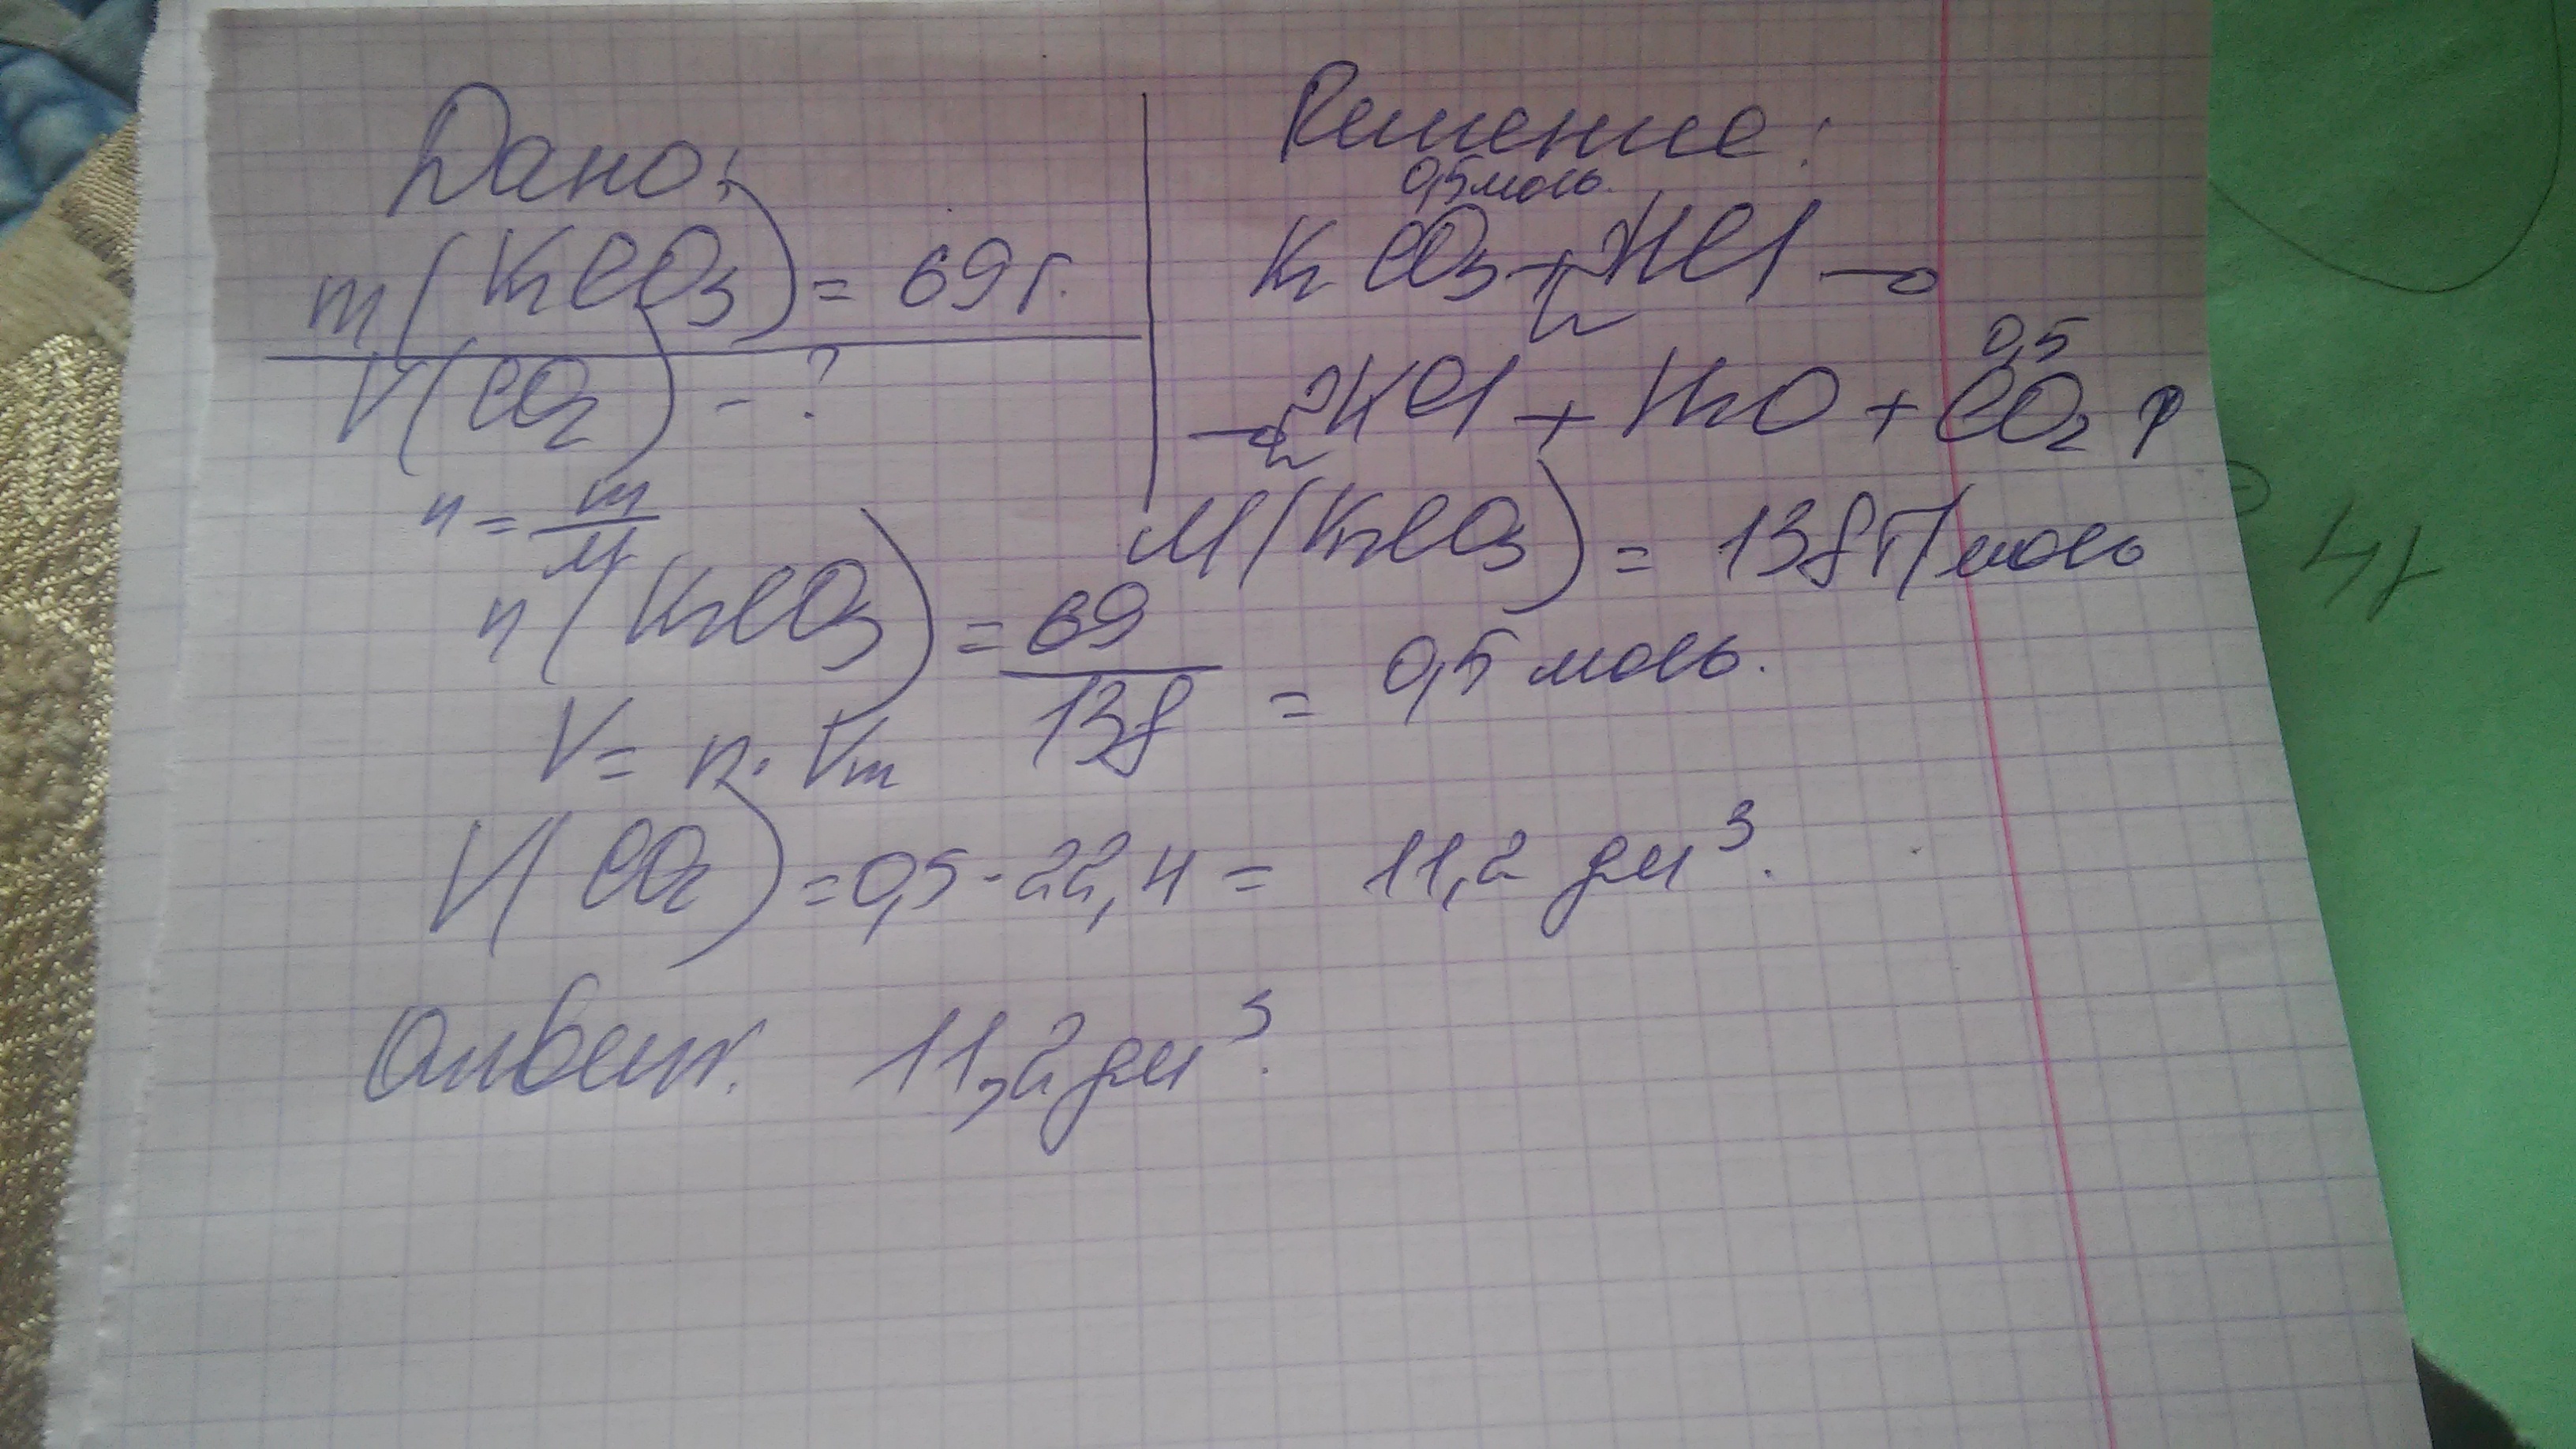 Дано:
m(K₂CO₃) = 69 г.
V(CO₂) - ?
Решение:
0,5 моль.
K₂CO₃ + 2HCl →
0,5
→ 2KCl + H₂O + CO₂ ↑
n = m/M
M(K₂CO₃) = 138 г/моль
n(K₂CO₃) = 69/138 = 0,5 моль.
V = n · Vm
V(CO₂) = 0,5 · 22,4 = 11,2 дм³.
Ответ: 11,2 дм³.